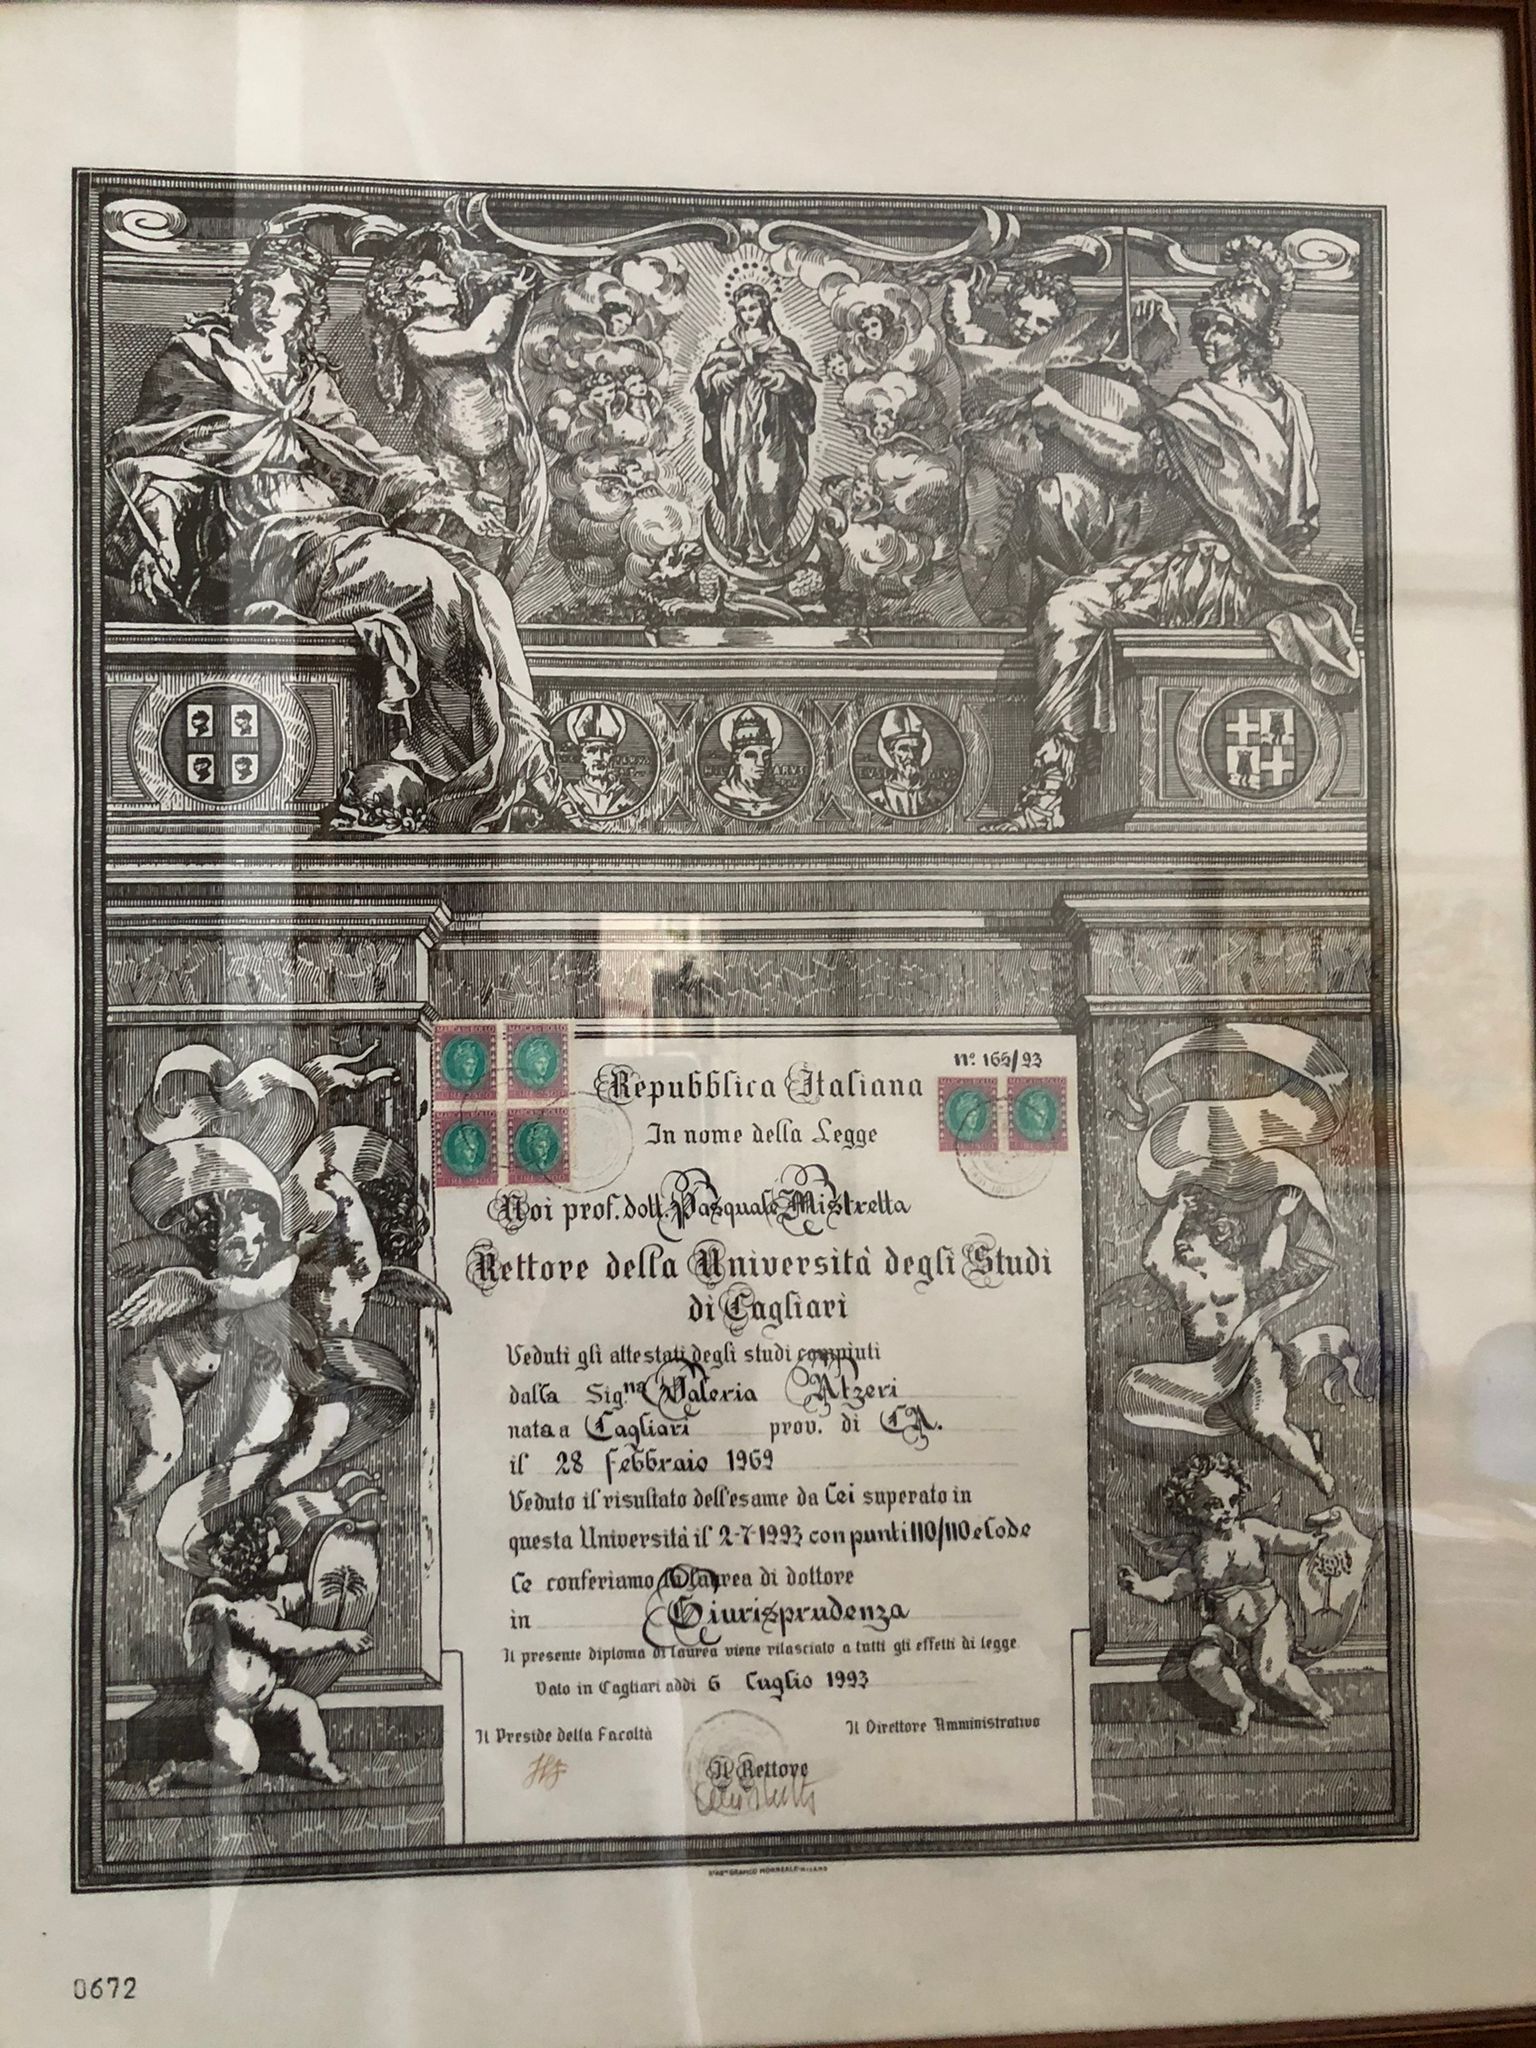 MARCA DA BOLLO MARCA DA BOLLO
nº 165/93
Repubblica Italiana
In nome della Legge
Noi prof. dott. Pasquale Mistretta
Rettore della Università degli Studi
di Cagliari
Veduti gli attestati degli studi compiuti
dalla Sig.na Valeria Atzeri
nata a Cagliari prov. di CA.
il 28 febbraio 1969
Veduto il risultato dell'esame da Lei superato in
questa Università il 2-7-1993 con punti 110/110 e Lode
Le conferiamo la laurea di dottore
in Giurisprudenza
Il presente diploma di laurea viene rilasciato a tutti gli effetti di legge
Dato in Cagliari addì 6 Luglio 1993
Il Preside della Facoltà
Il Direttore Amministrativo
Il Rettore
GRAFICO MORREALE-MILANO
0672